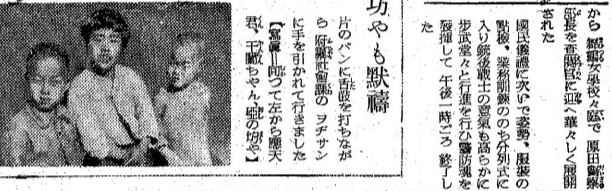 から 淑明女學校々庭で 原田警察
部長を查閲官に迎へ華々しく展開
された
國民儀禮に次いで姿勢、服裝の
點檢、業務訓練ののち分列式に
入り銃後戰士の意氣も高らかに
步武堂々と行進を行ひ警防魂を
發揮して 午後一時ごろ 終了し
た
坊やも默禱
片のパンに舌鼓を打ちなが
ら 府廳社會課の ヲヂサン
に手を引かれて行きました
【寫眞＝向つて左から應天
君、玉蘭ちやん、啞の坊や】